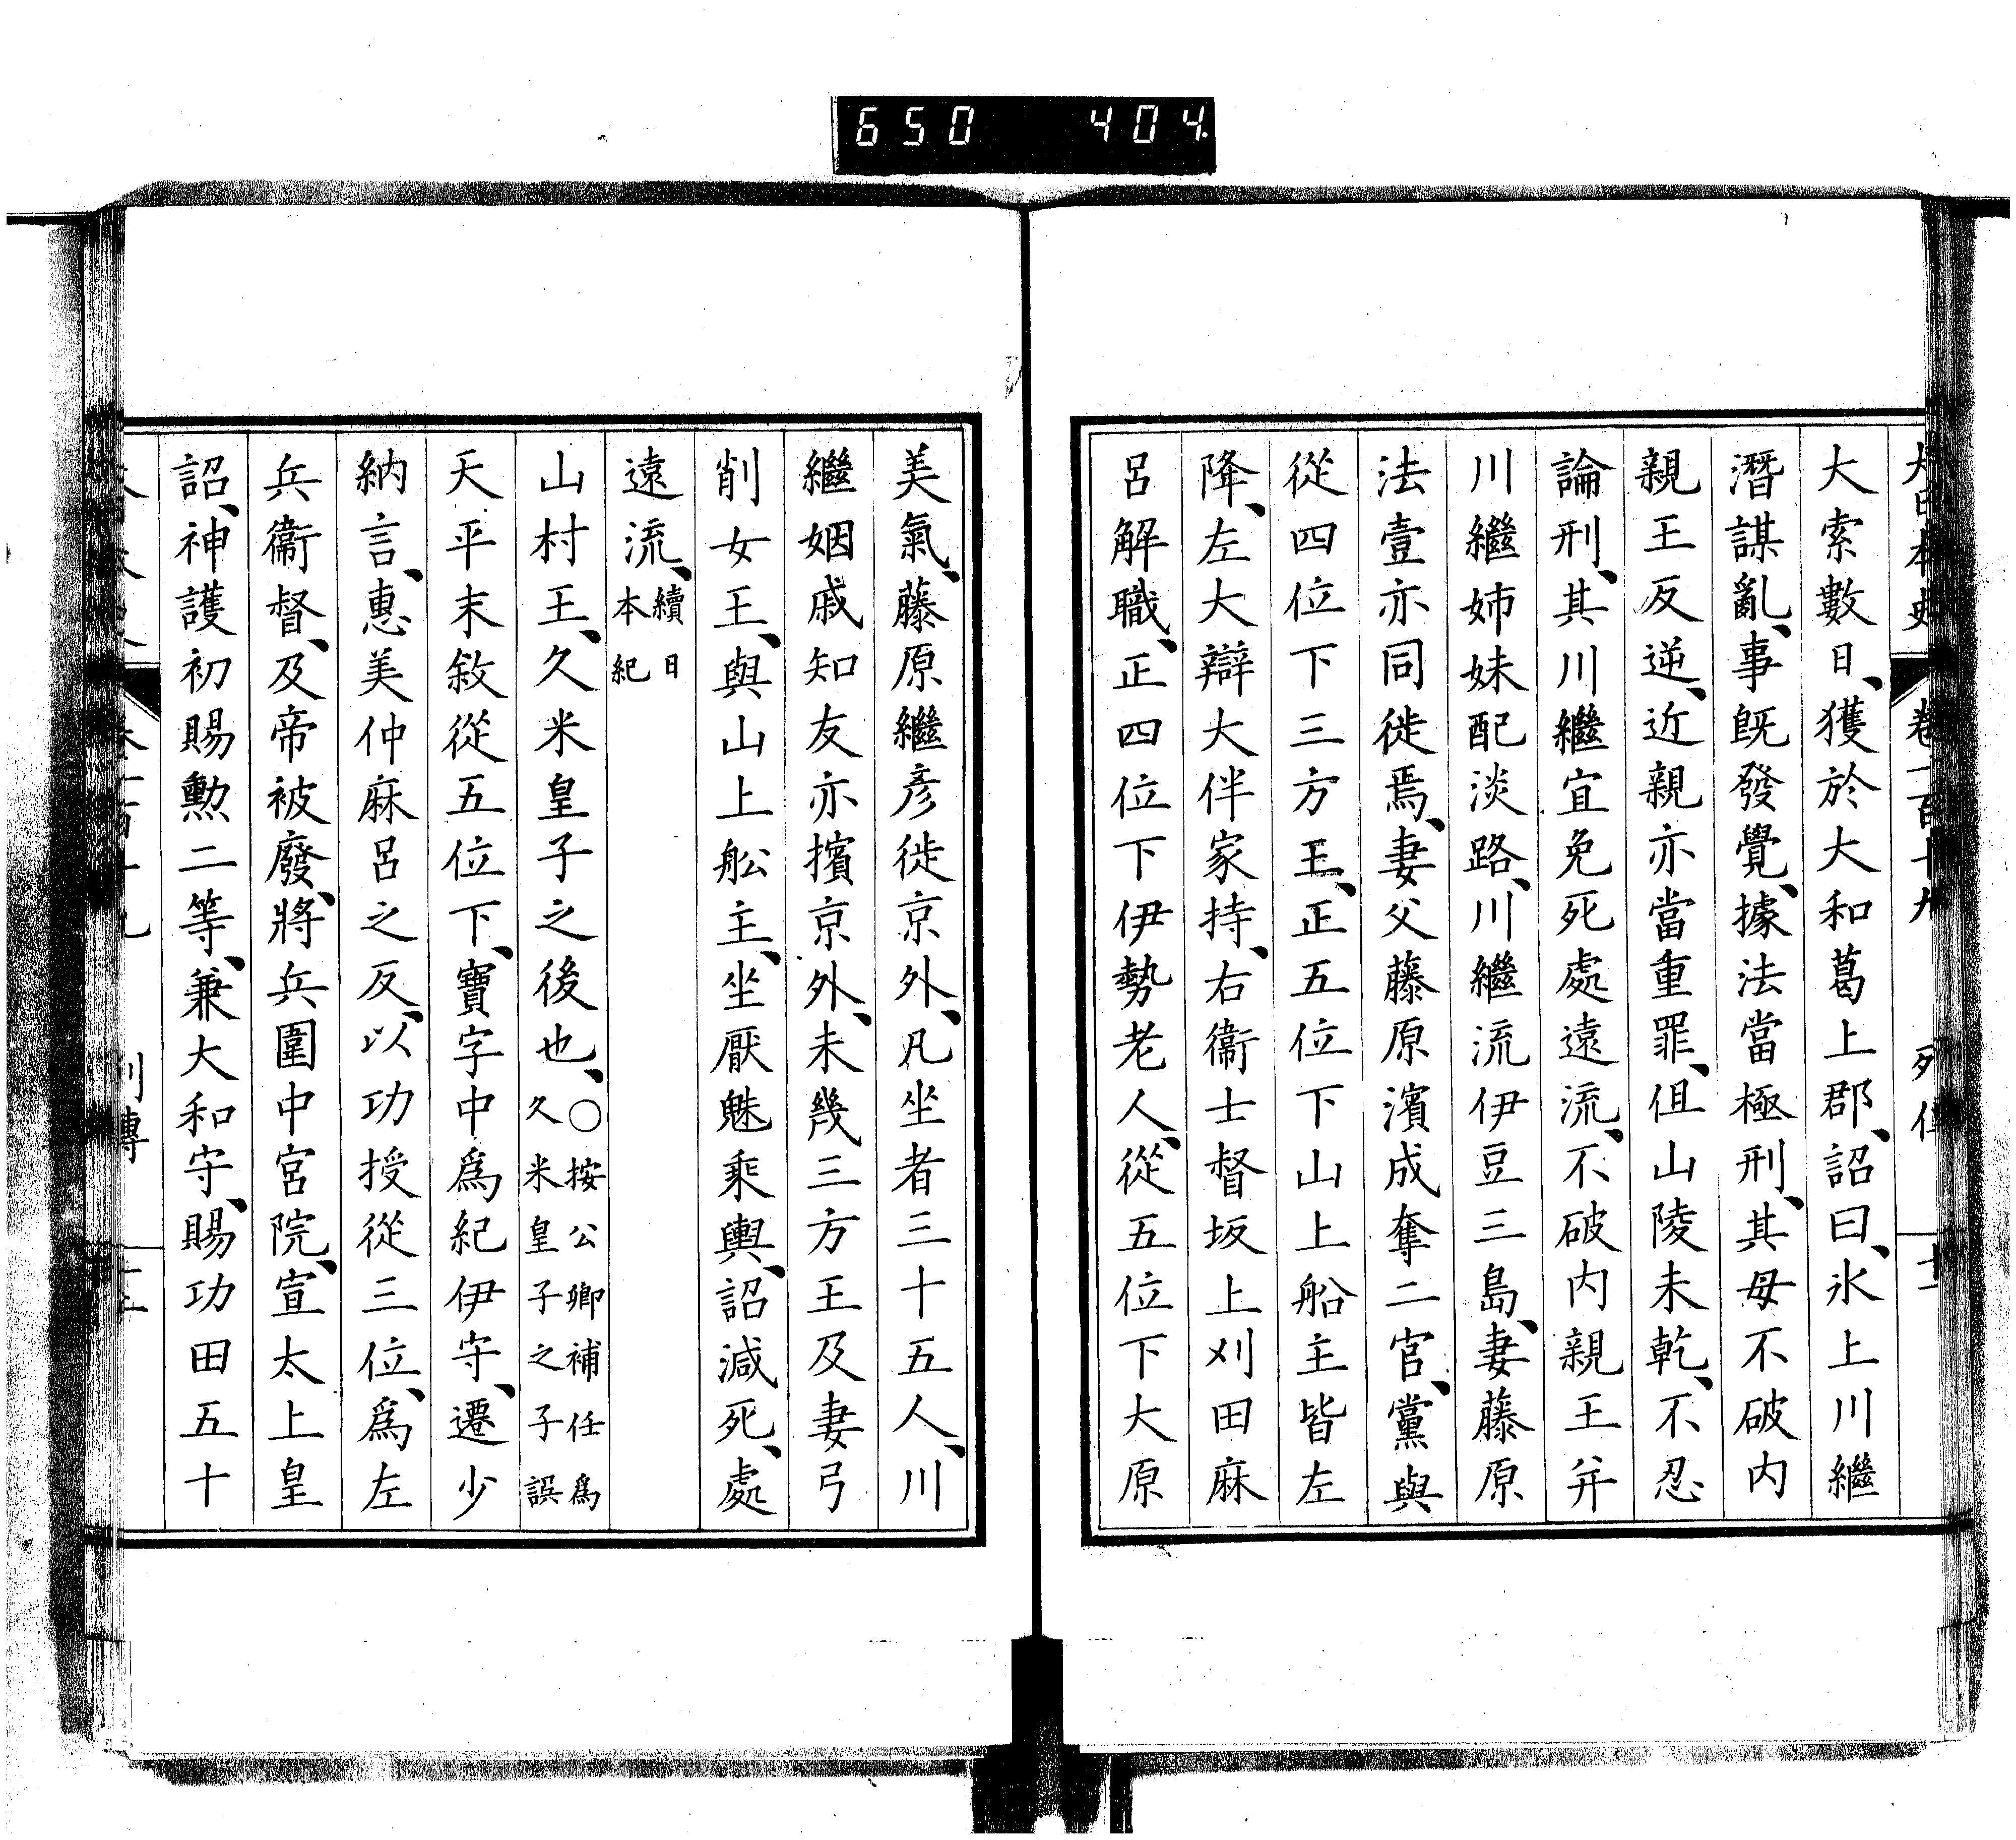 650 404.
大索數日、獲於大和葛上郡、詔曰、氷上川繼
潛謀亂、事既發覺、據法當極刑、其母不破内
親王反逆、近親亦當重罪、但山陵未乾、不忍
論刑、其川繼宜免死處遠流、不破内親王并
川繼姉妹配淡路、川繼流伊豆三島、妻藤原
法壹亦同徙焉、妻父藤原濱成奪二官、黨與
從四位下三方王、正五位下山上船主皆左
降、左大辯大伴家持、右衞士督坂上刈田麻
呂解職、正四位下伊勢老人、從五位下大原
美氣、藤原繼彥徙京外、凡坐者三十五人、川
繼姻戚知友亦擯京外、未幾三方王及妻弓
削女王、與山上舩主、坐厭魅乘輿、詔減死、處
遠流、續日本紀
山村王、久米皇子之後也、〇按公卿補任爲久米皇子之子誤
天平末敘從五位下、寶字中爲紀伊守、遷少
納言、惠美仲麻呂之反、以功授從三位、爲左
兵衞督、及帝被廢、將兵圍中宮院、宣太上皇
詔、神護初賜勲二等、兼大和守、賜功田五十